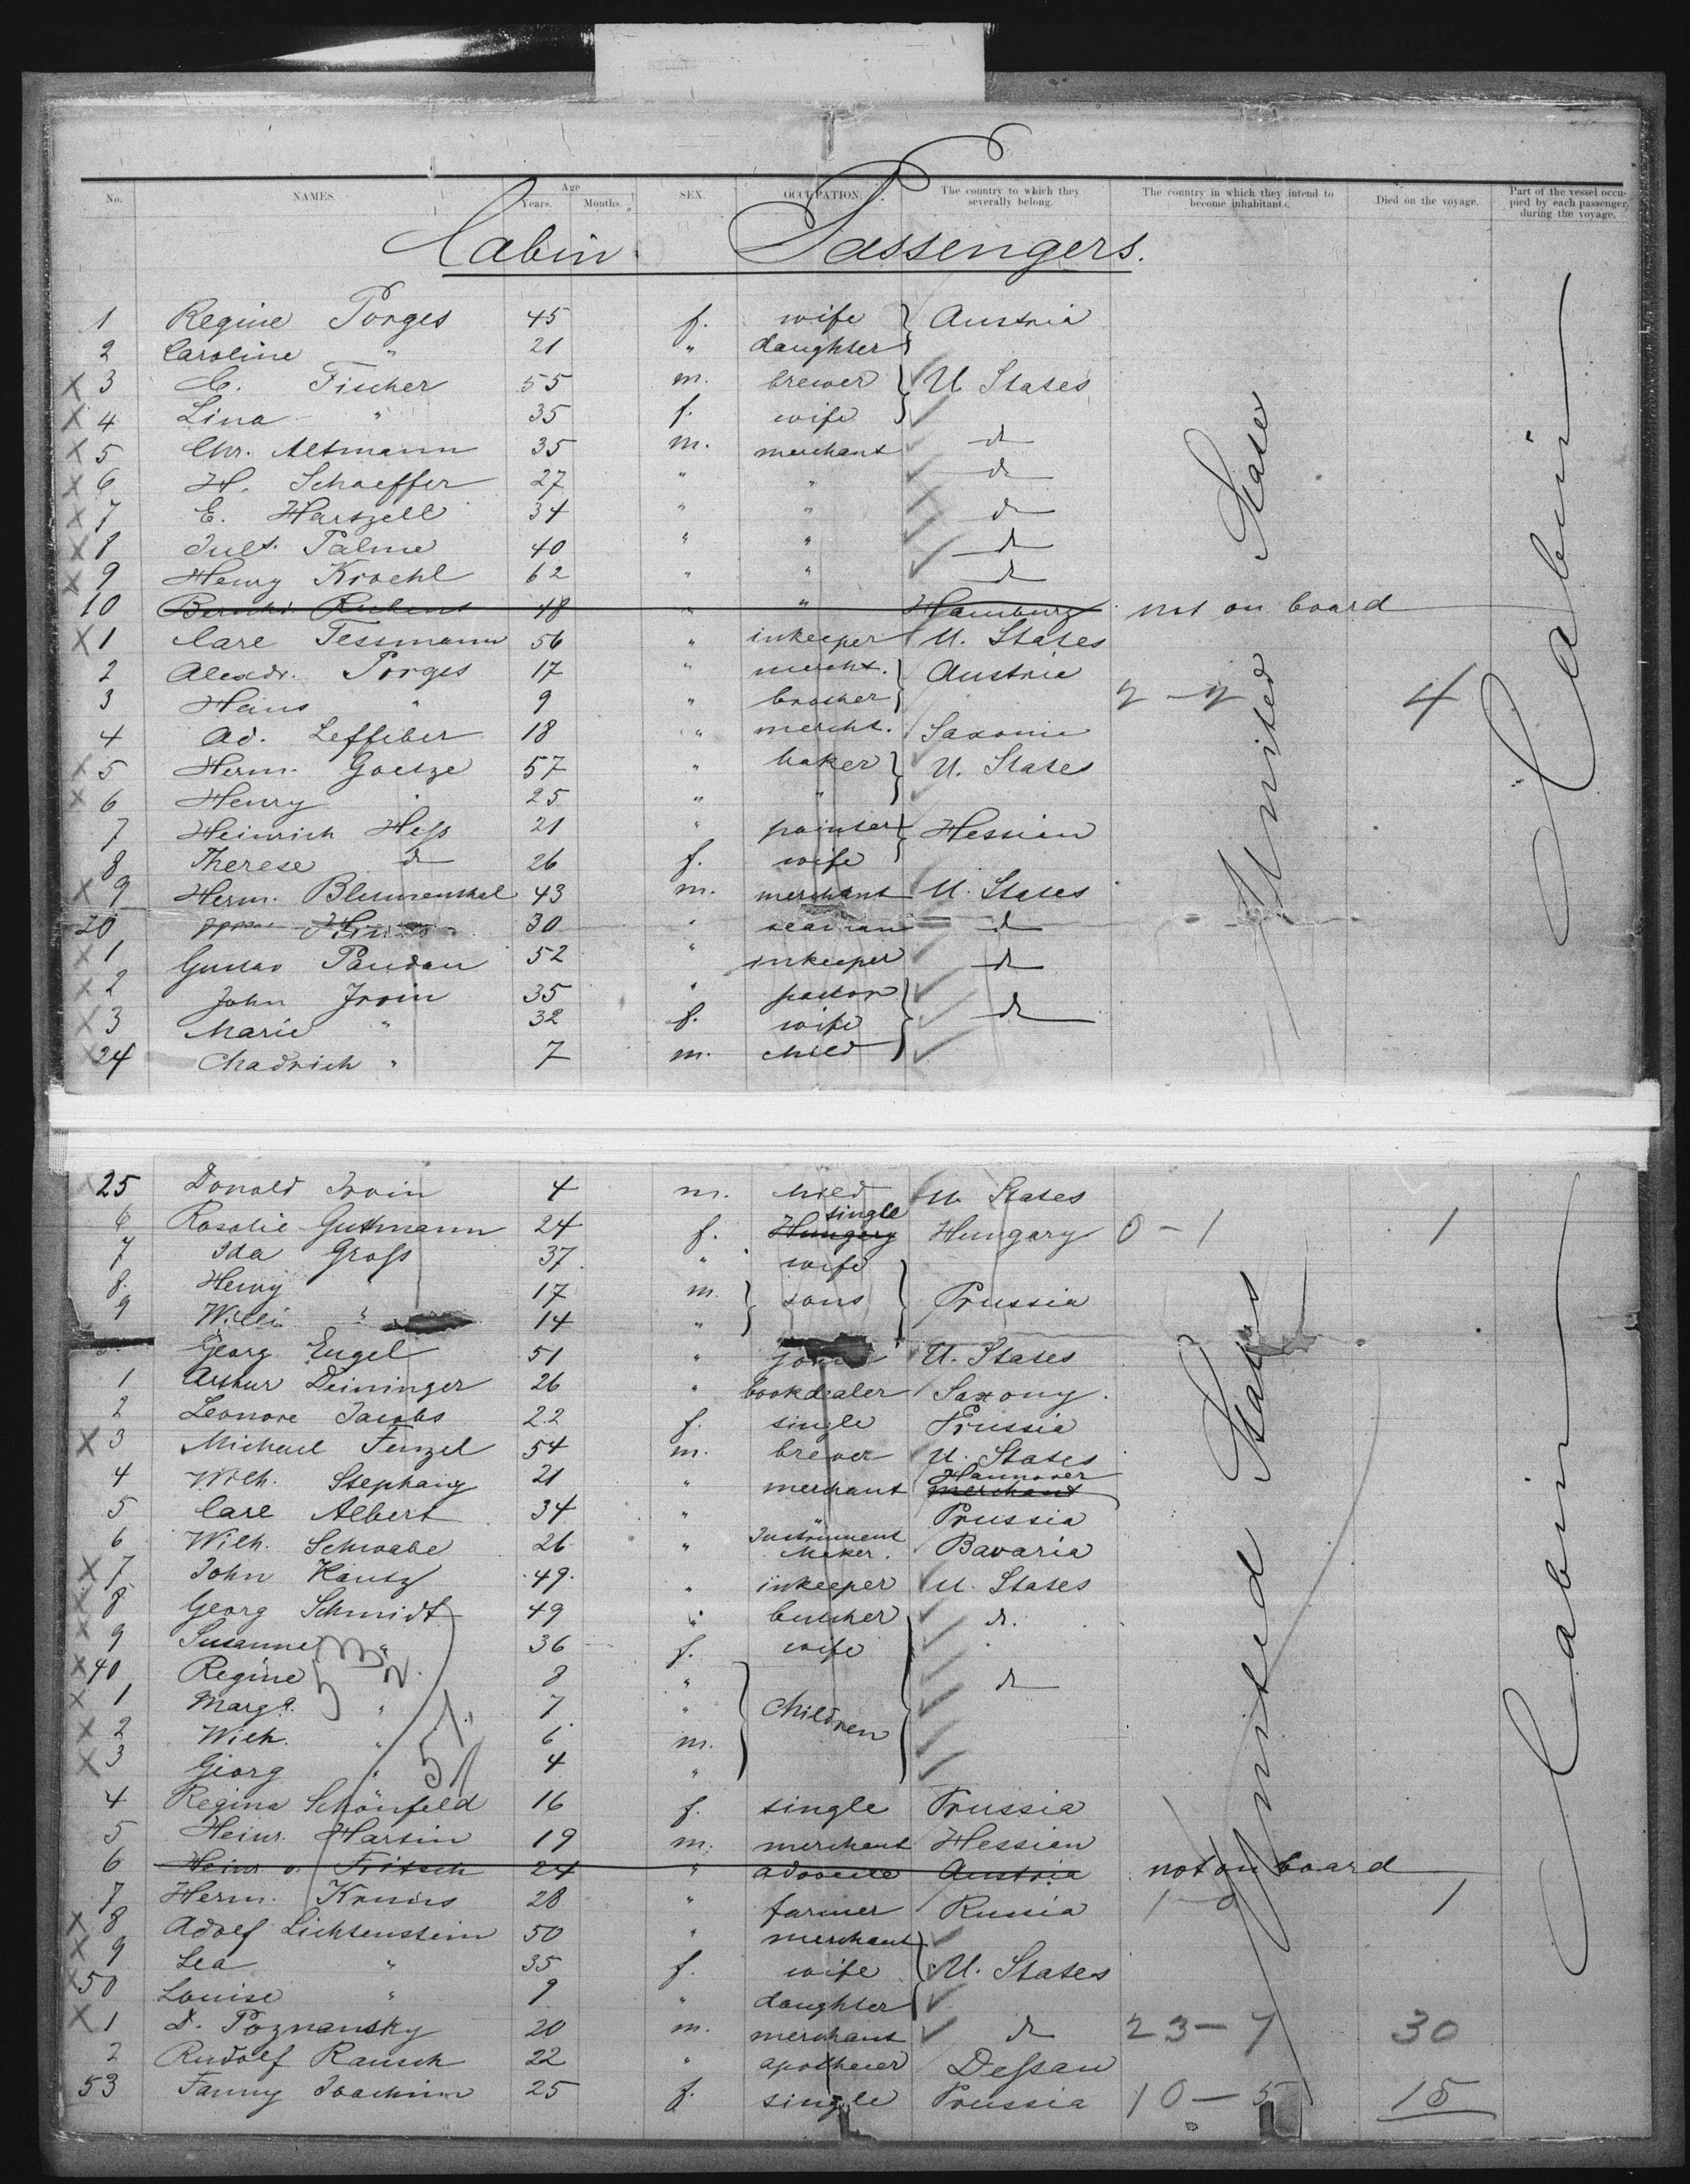 No. NAMES. Age Years. Months. SEX. OCCUPATION. The country to which they severally belong. The country in which they intend to become inhabitants. Died on the voyage. Part of the vessel occupied by each passenger during the voyage.
Cabin Passengers.
1 Regine Porges 45 f. wife Austria
2 Caroline " 21 " daughter
X 3 C. Fischer 55 m. brewer U States
X 4 Lina " 35 f. wife
X 5 Chr. Altmann 35 m. merchant d
X 6 H. Schaeffer 27 " " d
X 7 E. Hartzell 34 " " d
X 8 Juls. Palme 40 " " d
X 9 Henry Kroehl 62 " " d
10 48 " " Hamburg not on board
X 1 Carl Tessmann 56 " inkeeper U. States
2 Alexdr. Porges 17 " mercht. Austria
3 Hans " 9 " brother 4
4 Ad. Leffiber 18 " mercht. Saxonie
X 5 Herm. Goetze 57 " baker U. States
X 6 Henry " 25 " "
7 Heinrich Hess 21 " painter Hessian
8 Therese d 26 f. wife
X 9 Herm. Blumenthal 43 m. merchant U. States
20 30 " seaman d
X 1 Gustav Pandau 52 " inkeeper d
X 2 John Irvin 35 " pastor d
X 3 Marie " 32 f. wife
24 Chadrich " 7 m. child
United States
Cabin
25 Donald Irvin 4 m. child U. States
6 Rosalie Gutmann 24 f. Hungary single Hungary 0 - 1 1
7 Ida Gross 37 " wife
8. Henry 17 m. sons Prussia
9 Willi " 14 "
Georg Engel 51 " U. States
1 Arthur Deininger 26 " bookdealer Saxony.
2 Leonore Jacobs 22 f. single Prussia
X 3 Michael Fenzel 54 m. brewer U. States
4 Wilh. Stephany 21 " merchant merchant Hannover
5 Carl Albert 34 " " Prussia
6 Wilh. Schwabe 26 " Instrument Maker. Bavaria
X 7 John Kautz 49 " inkeeper U. States
X 8 Georg Schmidt 49 " butcher d.
X 9 Susanne " 36 f. wife
X 40 Regine 8 " d
X 1 Marga. " 7 " Children
X 2 Wilh. " 6 m.
X 3 Georg " 4 "
4 Regina Schönfeld 16 f. single Prussia
5 Heinr. Martin 19 m. merchant Hessian
6 Heinr. v. Fritsch 24 " advocate Austria not on board
7 Herm. 28 " farmer Russia 1
X 8 Adolf Lichtenstein 50 " merchant
X 9 Lea " 35 f. wife U. States
X 50 Louise " 9 " daughter
X 1 D. Poznansky 20 m. merchant d 23 - 7 30
2 Rudolf Rausch 22 " apothecer Dessau
53 Fanny Joachim 25 f. single Prussia 10 - 5 15
United States
Cabin